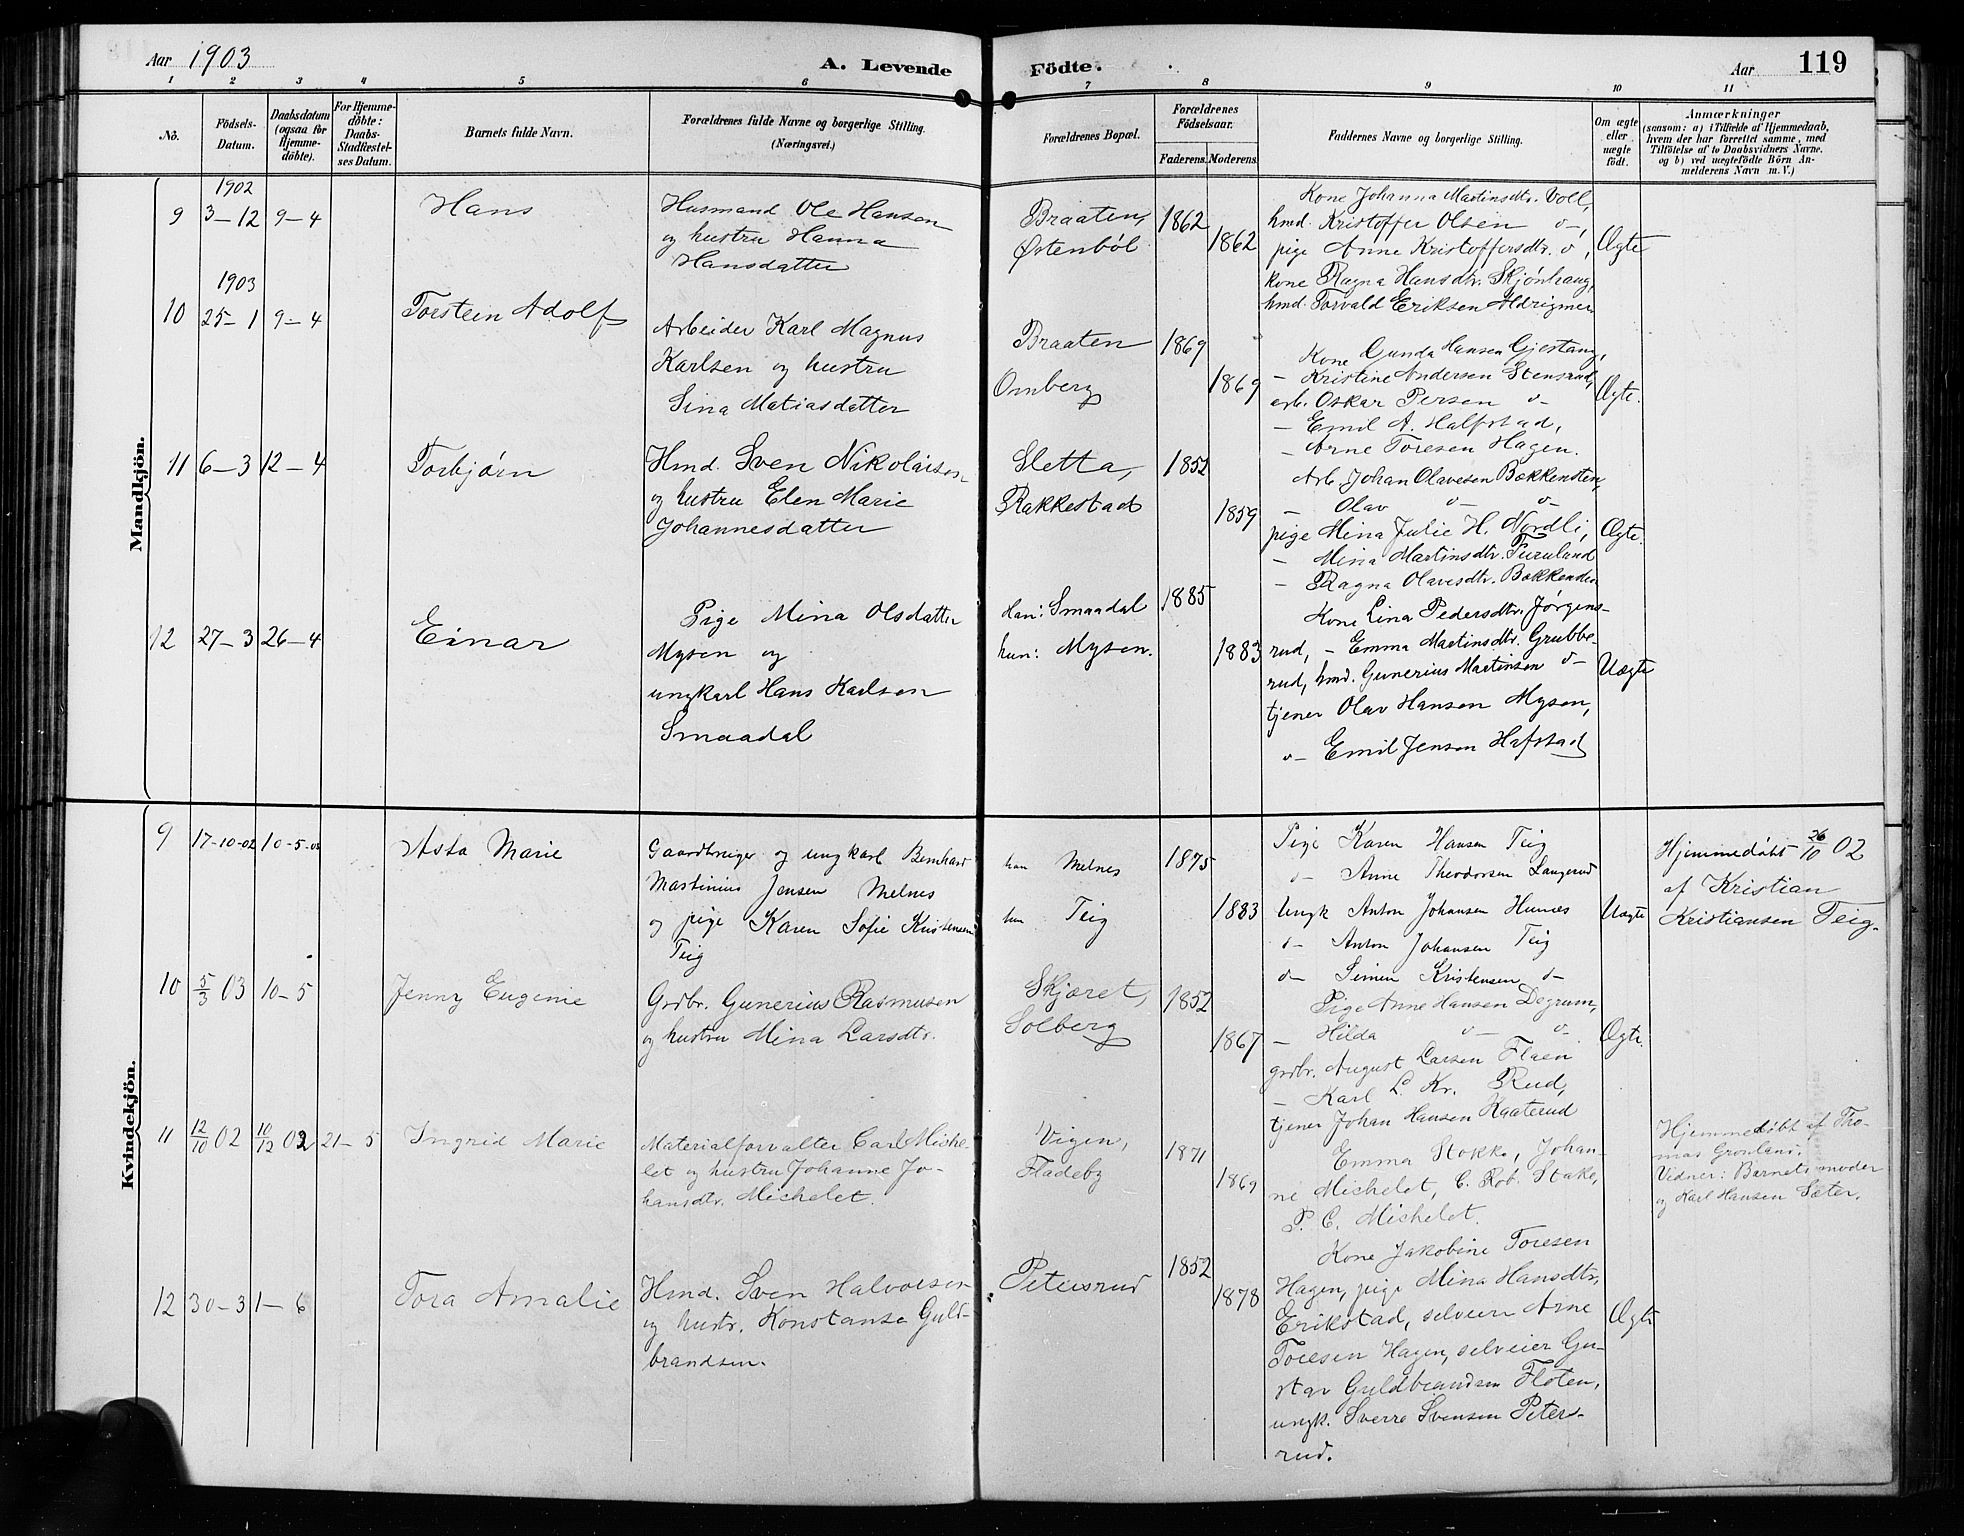 Aar 1903
A. Levende Födte.
Aar 119
1 2 3 4 5 6 7 8 9 10 11
No.
Födsels-Datum.
Daabsdatum (ogsaa for Hjemme-döbte).
For Hjemme-döbte: Daabs-Stadfæstel-ses Datum.
Barnets fulde Navn.
Forældrenes fulde Navne og borgerlige Stilling. (Næringsvei.)
Forældrenes Bopæl.
Forældrenes Födselsaar.
Faderens. Moderens.
Faddernes Navne og borgerlige Stilling.
Om ægte eller uægte födt.
Anmærkninger
(saasom: a) i Tilfælde af Hjemmedaab, hvem der har forrettet samme, med Tilföielse af to Daabsvidners Navne, og b) ved uegtefödte Börn Anmelderens Navn m. V.)
Mandkjön.
1902
9 3-12 9-4
Hans
Husmand Ole Hansen
og hustru Hanna
Hansdatter
Braaten,
Østenböl
1862
1862
Kone Johanna Martinsdtr. Voll,
hmd. Kristoffer Olsen o-,
pige Anne Kristoffersdtr. o,
kone Ragna Hansdtr. Skjönhaug,
hmd. Torvald Eriksen
Ægte
1903
10 25-1 9-4
Torstein Adolf
Arbeider Karl Magnus
Karlsen og hustru
Sina Matiasdatter
Braaten
Omberg
1869
1869
Kone Gunda Hansen Gjestang,
- Kristine Andersen Stensrud,
arb. Oskar Persen o-
- Emil A. Halfstad,
- Arne Toresen Hagen.
Ægte.
11 6-3 12-4
Torbjørn
Hmd. Sven Nikolaisen
og hustru Elen Marie
Johannesdatter
Sletta,
Rakkestad
1852
1859
Arb. Johan Olavesen Bækkensten,
- Olav o- o-
pige Mina Julie H. Nordli,
- Mina Martinsdtr. Furulund
- Ragna Olavesdtr. Bækkensten
Ægte.
12 27-3 26-4
Einar
Pige Mina Olsdatter
Mysen og
ungkarl Hans Karlsen
Smaadal
Han: Smaadal
hun: Mysen.
1885
1883
Kone Lina Pedersdtr. Jørgens-
rud, - Emma Martinsdtr. Grubbe-
rud, hmd. Gunerius Martinsen o-
tjener Olav Hansen Mysen,
o- Emil Jensen Hafstad
Uægte
Kvindekjön.
9 17-10-02 10-5-03
Asta Marie
Gaardbruger og ungkarl Bernhard
Martinius Jensen Melnes
og pige Karen Sofie Kristensen
Teig
han Melnes
hun Teig
1875
1883
Pige Karen Hansen Teig
o- Anne Theodorsen Langerud
Ungk Anton Johansen Hunæs
o- Anton Johansen Teig
o- Simen Kristensen o-
Uægte
Hjemmedöbt 26/10 02
af Kristian
Kristiansen Teig.
10 5/3 03 10-5
Jenny Eugenie
Grdbr. Gunerius Rasmusen
og hustru Mina Larsdtr.
Skjæret,
Solberg
1852
1867
Pige Anne Hansen Degrum,
- Hilda o- o-
grdbr. August Larsen Flaen
- Karl L. Kr. Rud,
tjener Johan Hansen Kaaterud
Ægte.
11 12/10 02 10/12 02 21-5
Ingrid Marie
Materialforvalter Carl Miche-
let og hustru Johanne Jo-
hansdtr. Michelet.
Vigen,
Fladeby
1871
1869
Emma Stokke, Johan-
ne Michelet, C. Rob. Stake,
P. C. Michelet.
Hjemmedöbt af Tho-
mas Grönlund.
Vidner: Barnets moder
og Karl Hansen Sæter.
12 30-3 1-6
Tora Amalie
Hmd. Sven Halvorsen
og hustr. Konstanse Guld-
brandsen.
Petersrud
1852
1878
Kone Jakobine Toresen
Hagen, pige Mina Hansdtr.
Erikstad, selveier Arne
Toresen Hagen, selveier Gu-
stav Guldbrandsen Floten,
ungk. Sverre Svensen Peters-
rud.
Ægte